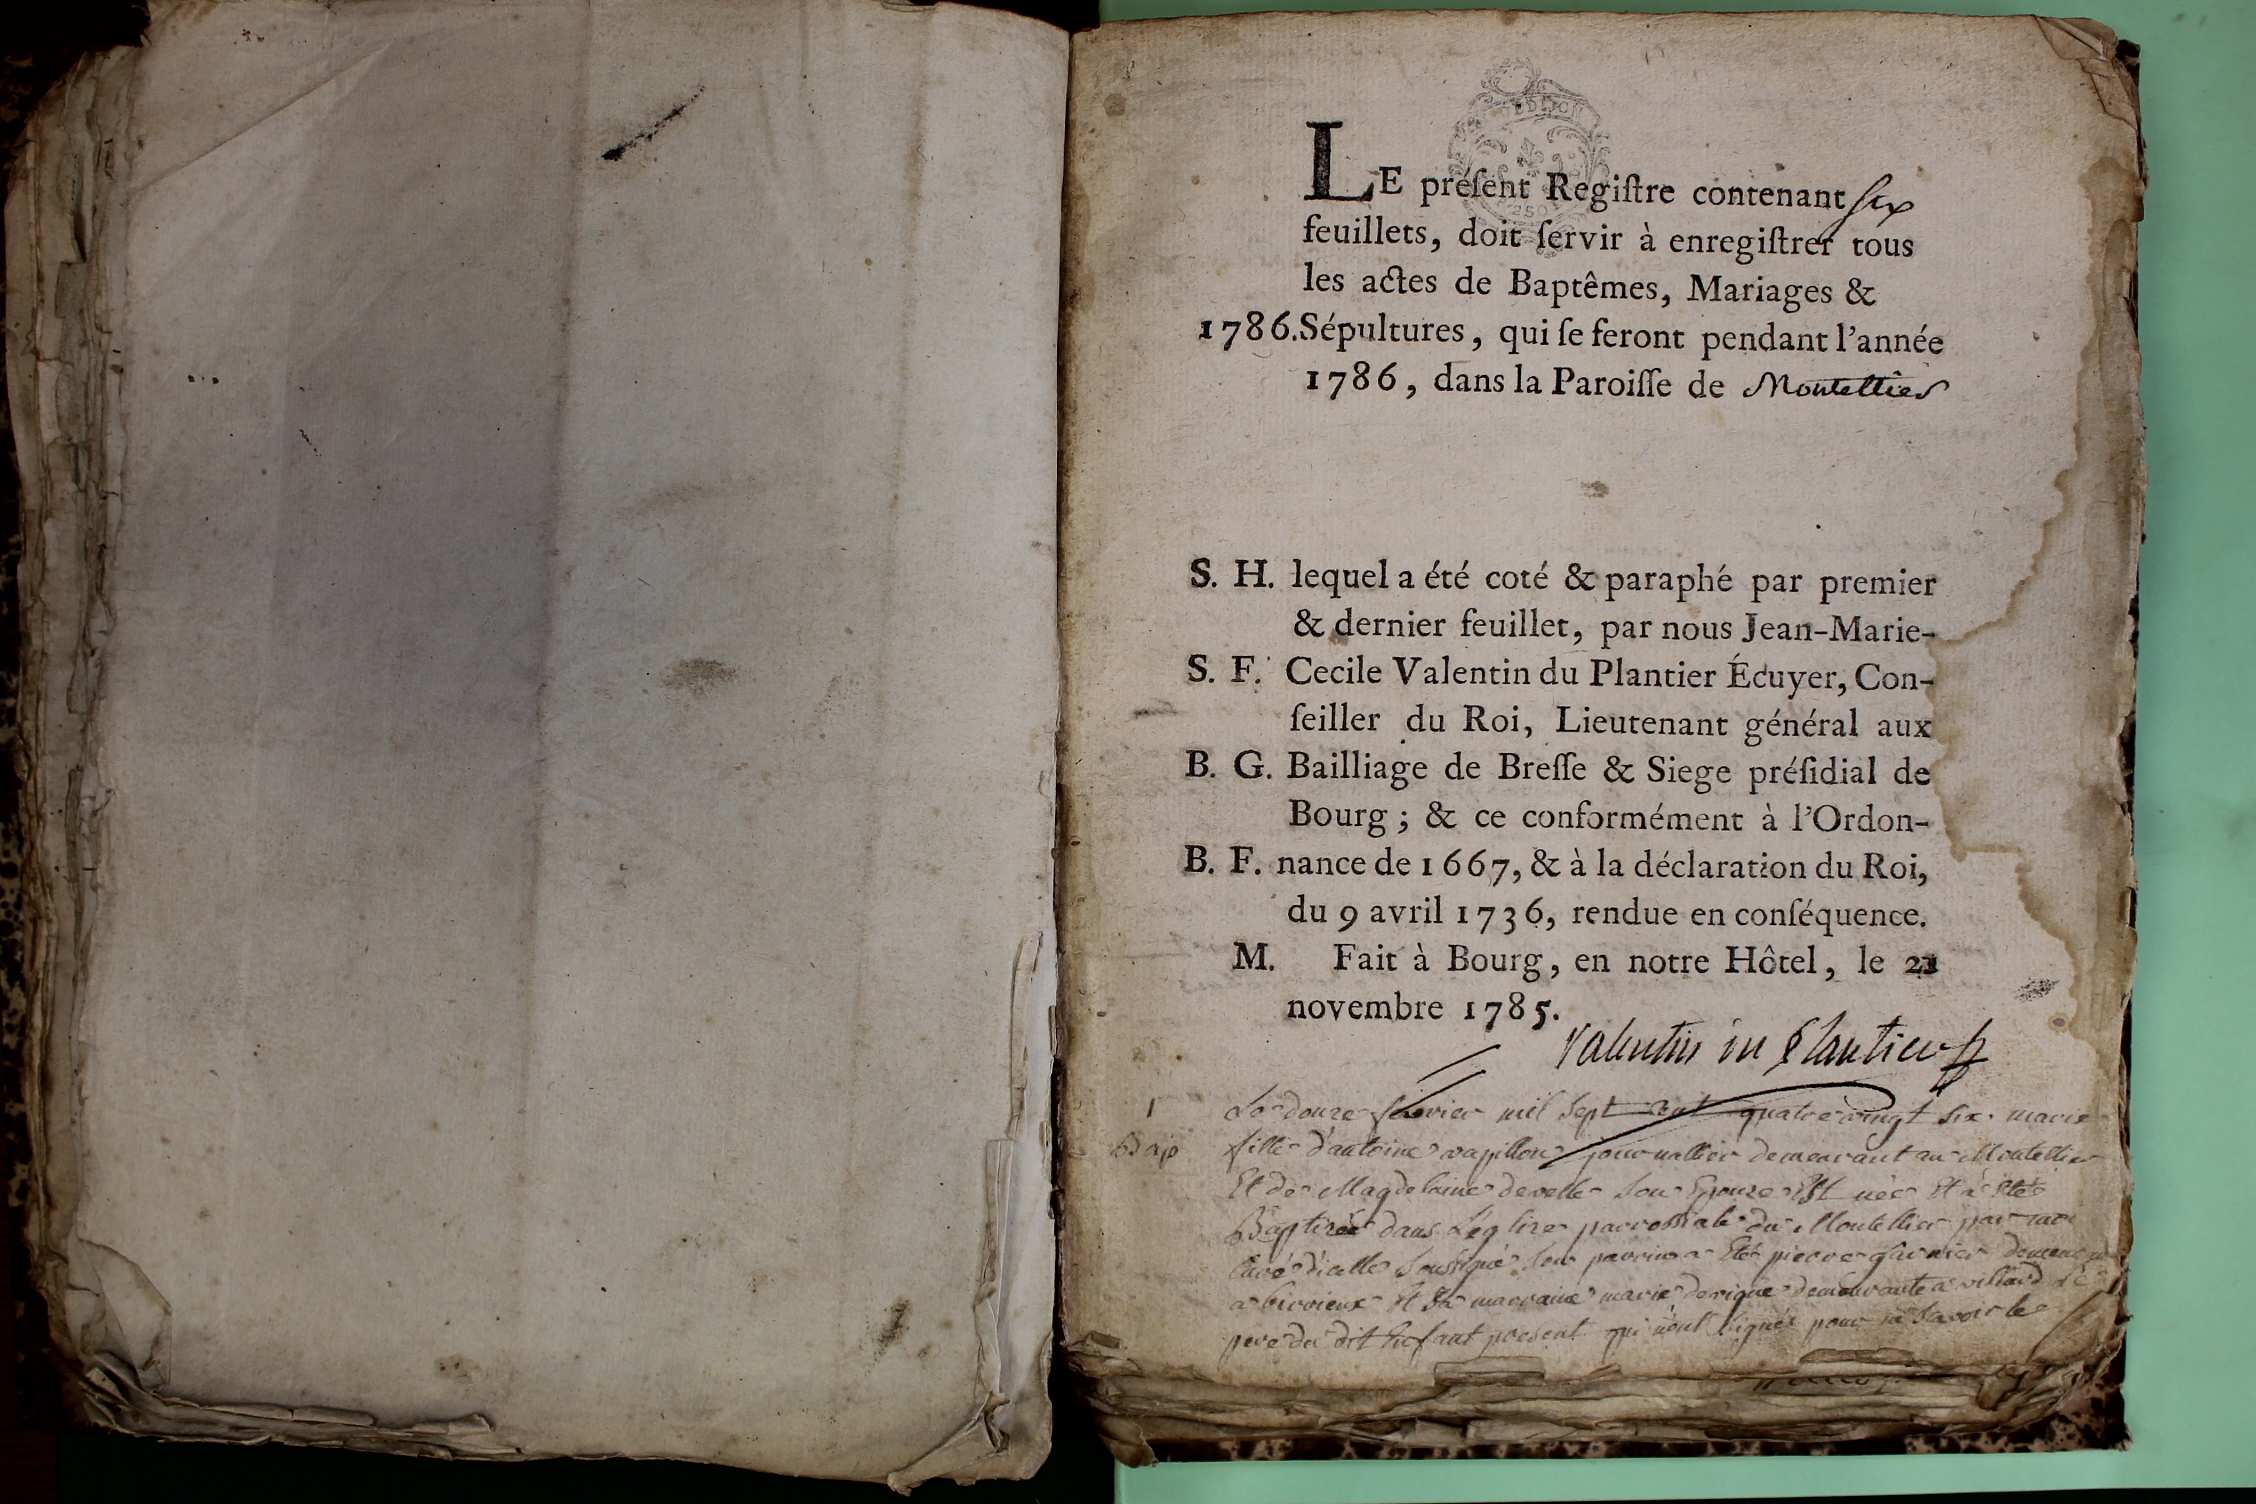 LE préſent Regiſtre contenant ſix
feuillets, doit ſervir à enregiſtrer tous
les actes de Baptêmes, Mariages &
1786. Sépultures, qui ſe feront pendant l'année
1786, dans la Paroiſſe de Montellier
S. H. lequel a été coté & paraphé par premier
& dernier feuillet, par nous Jean-Marie-
S. F. Cecile Valentin du Plantier Écuyer, Con-
ſeiller du Roi, Lieutenant général aux
B. G. Bailliage de Breſſe & Siege préſidial de
Bourg ; & ce conformément à l'Ordon-
B. F. nance de 1667, & à la déclaration du Roi,
du 9 avril 1736, rendue en conſéquence.
M. Fait à Bourg, en notre Hôtel, le 21
novembre 1785.
Valentin du Plantier
1 Le douze mil sept cent quatre vingt six marie
Bap fille d'antoine papillon journallier demeurant au Montellier
Et de Magdelaine son Epouze Est née Et a Eté
Baptizée dans L'eglize parroissiale du Montellier par moi
Curé d'icelle soussigné son parrin a Eté pierre garnier
a birieux Et sa marraine marie demeurante a villard Le
pere du dit Enfant present qui n'ont signé pour ne savoir le